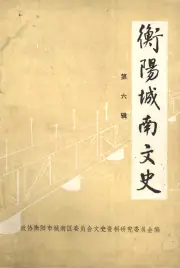 衡陽城南文史
第六辑
政协衡阳市城南区委员会文史资料研究委员会编